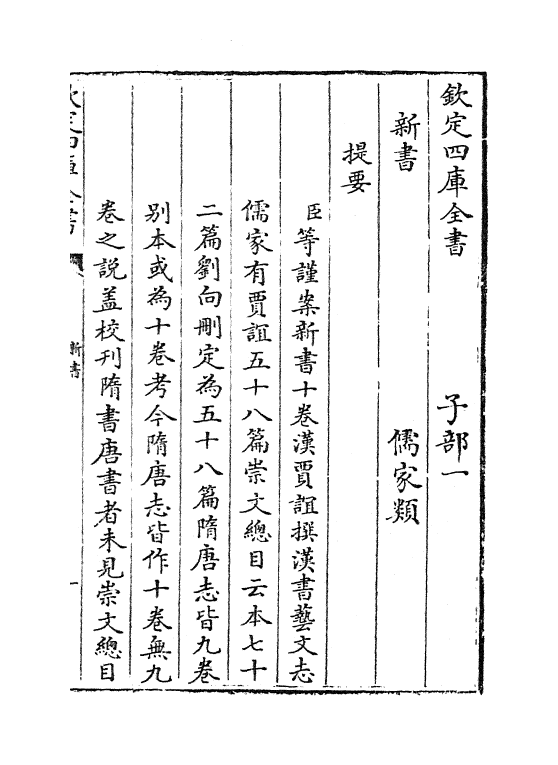 欽定四庫全書 子部一
新書 儒家類
提要
臣等謹案新書十卷漢賈誼撰漢書藝文志
儒家有賈誼五十八篇崇文總目云本七十
二篇劉向刪定為五十八篇隋唐志皆九卷
别本或為十卷考今隋唐志皆作十卷無九
卷之說盖校刊隋書唐書者未見崇文總目
新書
一